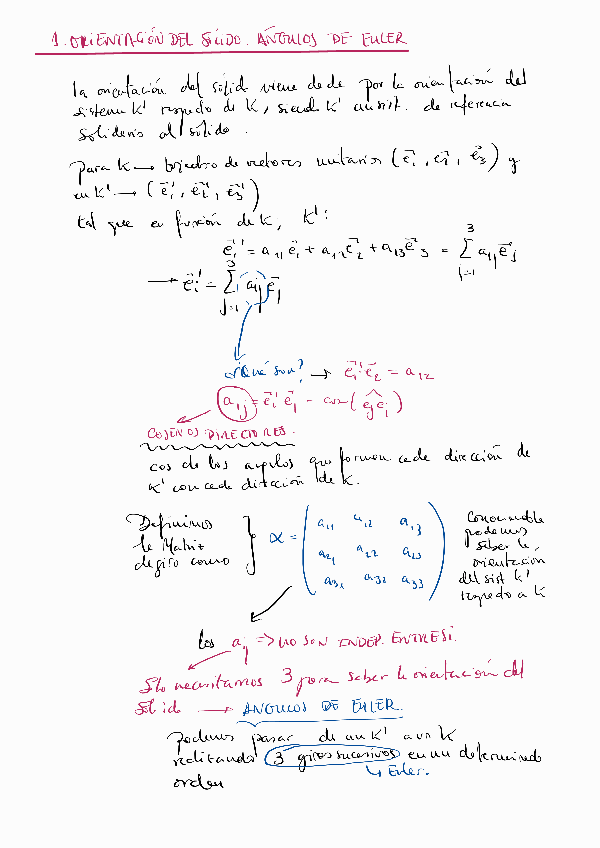 1. ORIENTACIÓN DEL SÓLIDO. ÁNGULOS DE EULER
la orientación del sólido viene dada por la orientación del
sistema K' respecto de K, siendo K' un sist. de referencia
solidario al sólido.
para K → triedro de vectores unitarios (e⃗₁, e⃗₂, e⃗₃) y
en K' → (e⃗₁', e⃗₂', e⃗₃')
tal que en función de K, K':
e⃗₁' = a₁₁ e⃗₁ + a₁₂ e⃗₂ + a₁₃ e⃗₃ = Σ_{j=1}^{3} a₁ⱼ e⃗ⱼ
→ e⃗ᵢ' = Σ_{j=1}^{3} aᵢⱼ e⃗ⱼ
¿Qué son? → e⃗₁' e⃗₂ = a₁₂
aᵢⱼ = e⃗ᵢ' e⃗ⱼ = cos(
COSENOS DIRECTORES.
cos de los angulos que forman cada dirección de
K' con cada dirección de K.
Definimos
la Matriz
de giro como
α = ( a₁₁ a₁₂ a₁₃
a₂₁ a₂₂ a₂₃
a₃₁ a₃₂ a₃₃ )
podemos
saber la
orientación
del sist K'
respecto a K
los aᵢⱼ => NO SON INDEP. ENTRE SÍ.
Sólo necesitamos 3 para saber la orientación del
sólido → ÁNGULOS DE EULER.
Podemos pasar de un K' a un K
realizando 3 giros sucesivos en un determinado
↳ Euler.
orden